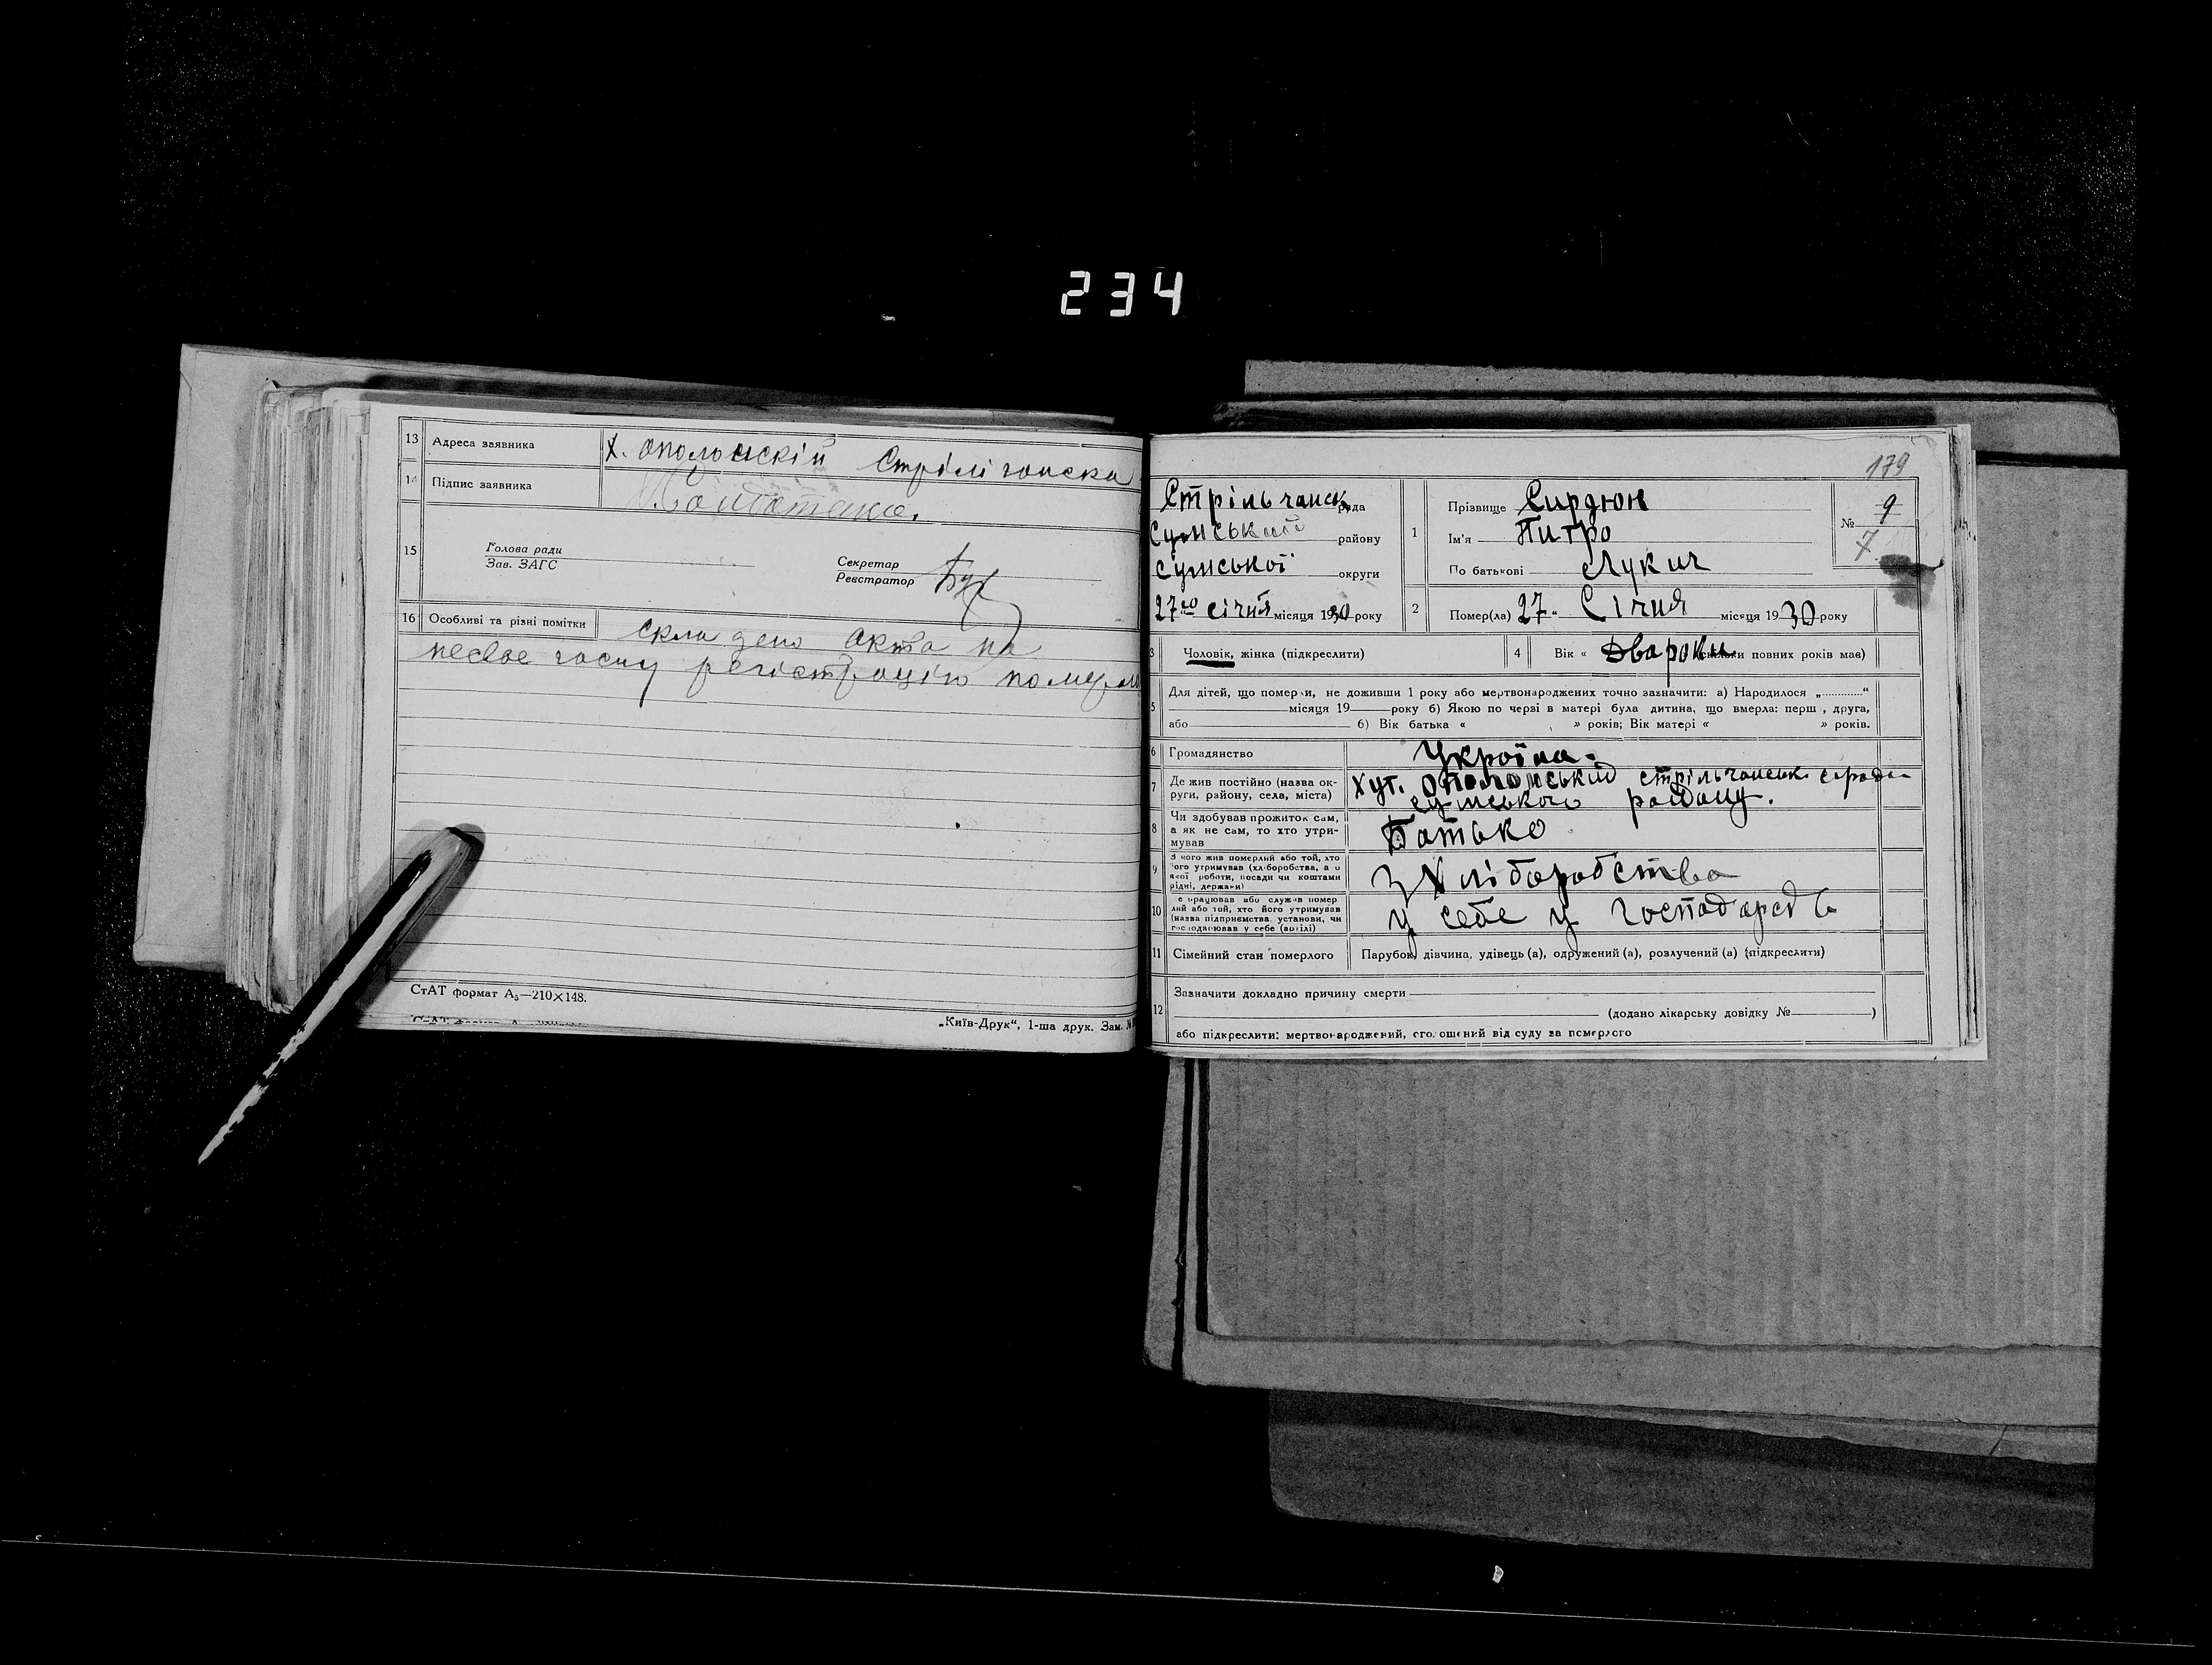 234
13 Адреса заявника Х. ополонскій Стрілі чанска
14 Підпис заявника
15 Голова ради
Зав. ЗАГС
Секретар
Реєстратор
16 Особливі та різні помітки скла дено акта на
несвоє часну регістрацію померл
СтАТ формат А₅—210×148.
„Київ-Друк“, 1-ша друк. Зам.
179
Стрільчанск рада
Сумський району
Сумської округи
27го Січня місяця 1930 року
1 Прізвище Сирдюк
Ім'я Питро
По батькові Лукич
№ 9
7
2 Помер(ла) 27 Січня місяця 1930 року
3 Чоловік, жінка (підкреслити)
4 Вік « Два роки (скільки повних років має)
5 Для дітей, що померли, не доживши 1 року або мертвонароджених точно зазначити: а) Народилося „..........“
місяця 19 року б) Якою по черзі в матері була дитина, що вмерла: перш , друга,
або б) Вік батька « » років; Вік матері « » років.
6 Громадянство Україна.
7 Де жив постійно (назва ок-
руги, району, села, міста) Хут. Ополонський стрільчанськ сіради
сумського району.
8 Чи здобував прожиток сам,
а як не сам, то хто утри-
мував Батько
9 З чого жив померлий або той, хто
його утримував (хліборобства, а о
якої роботи, посади чи коштами
рідні, держави) З Хліборобства
10 е працював або служив помер
лий або той, хто його утримував
(назва підприємства, установи, чи
господарював у себе (артілі) у себе у господарств
11 Сімейний стан померлого Парубок, дівчина, удівець (а), одружений (а), розлучений (а) (підкреслити)
12 Зазначити докладно причину смерти
(додано лікарську довідку № )
або підкреслити: мертвонароджений, оголошений від суду за померлого